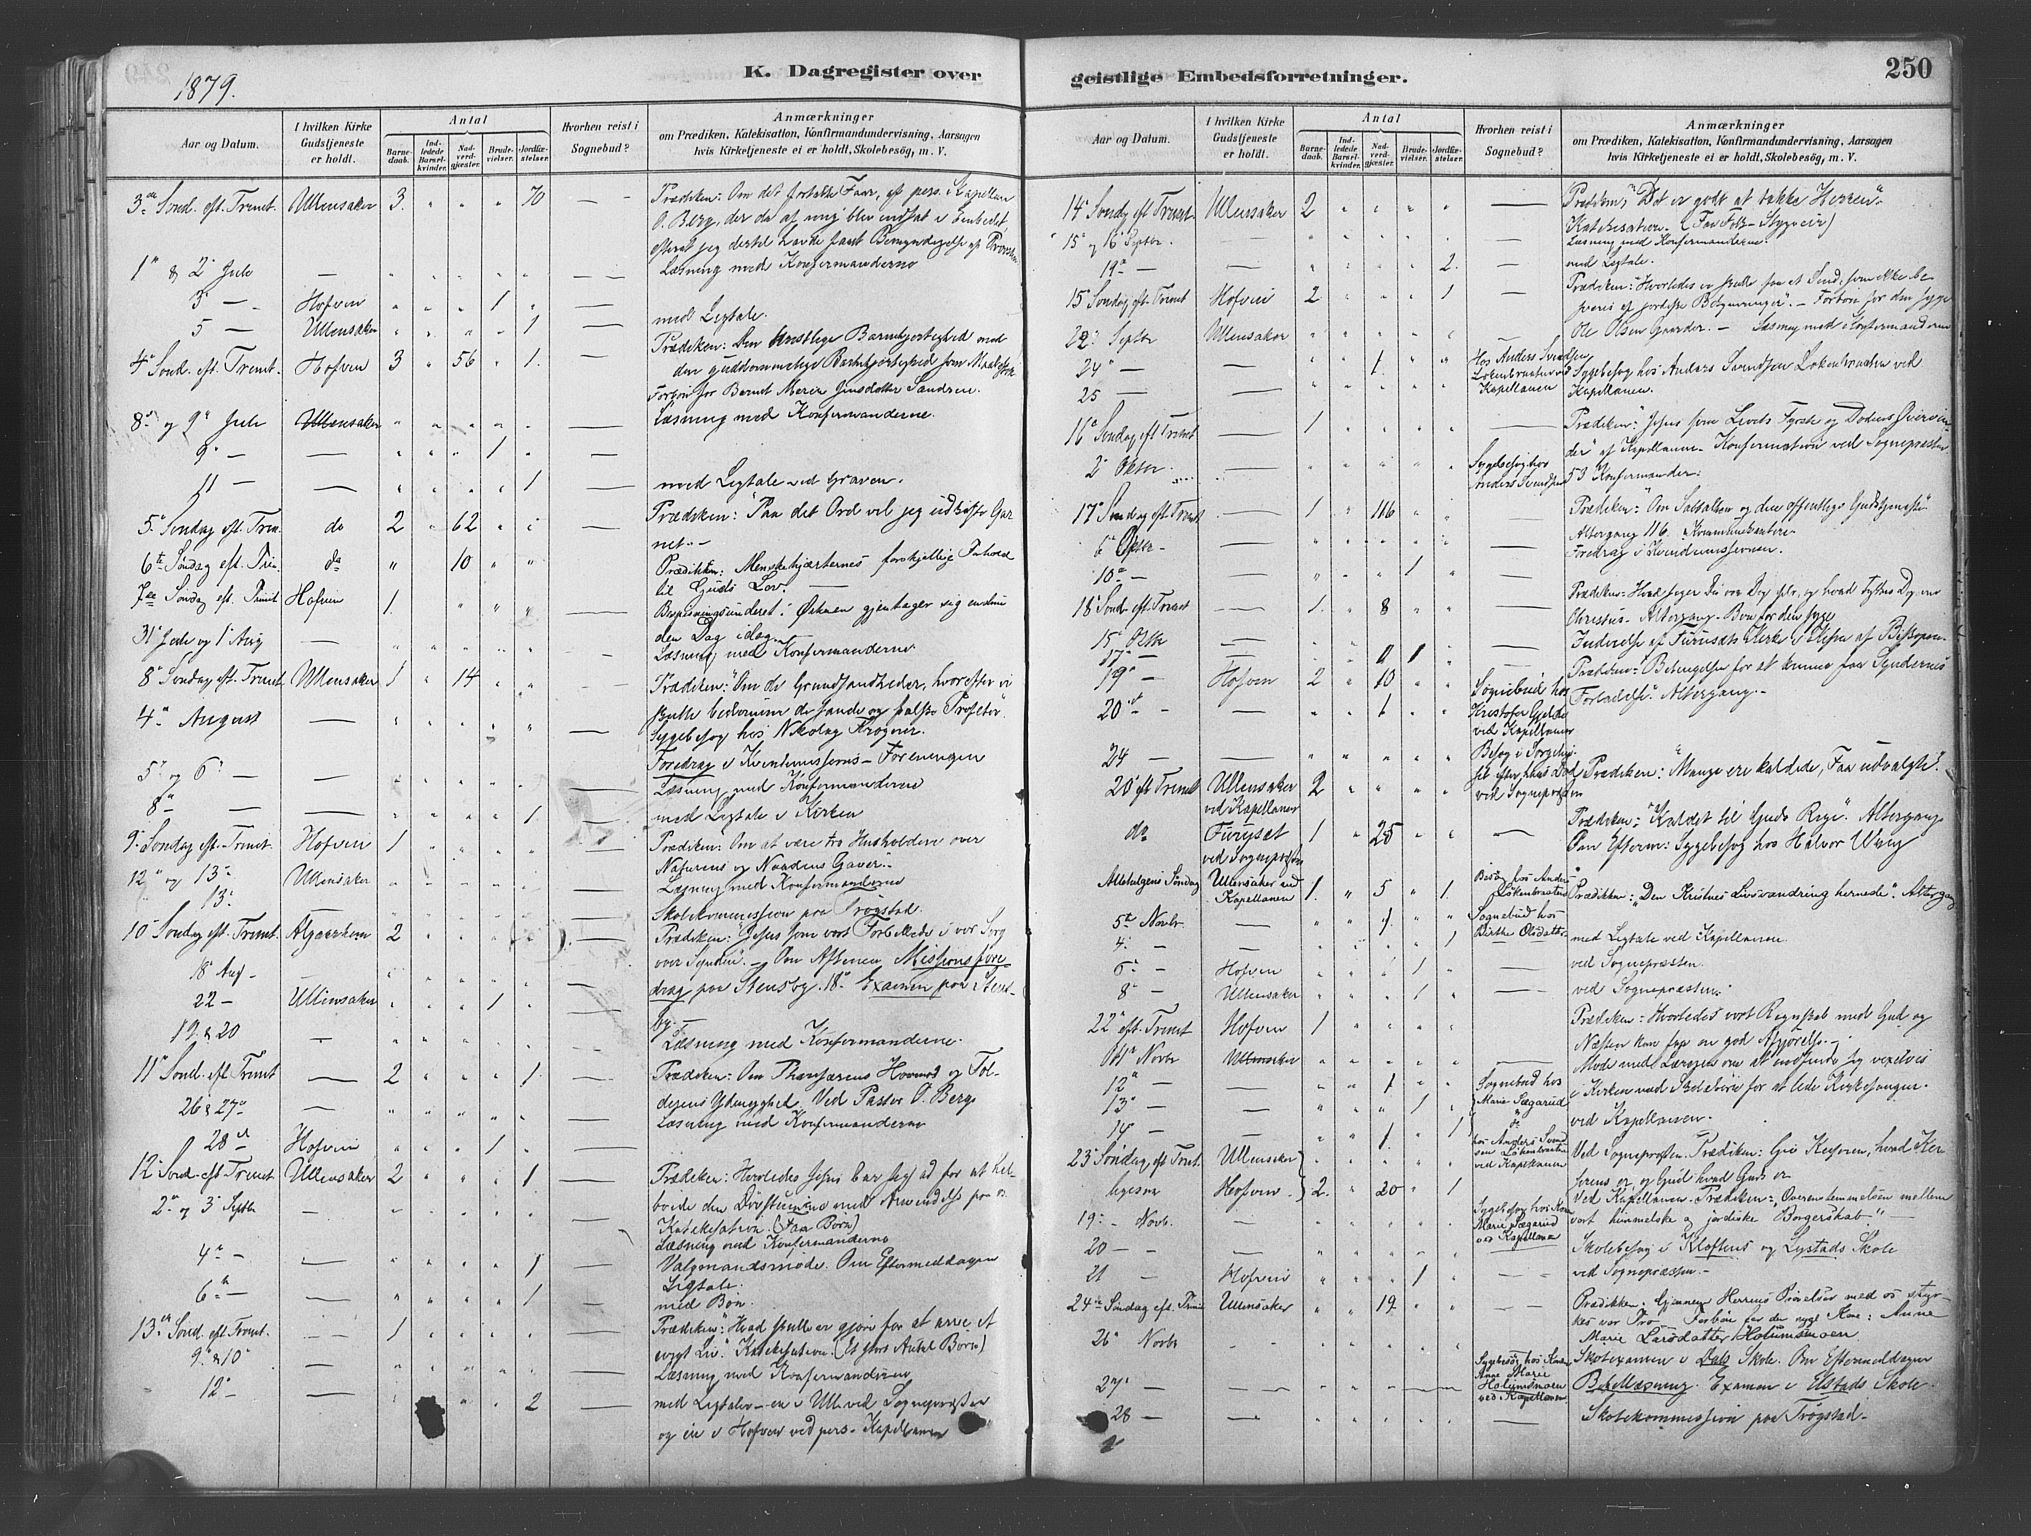 1879.
K. Dagregister over
geistlige Embedsforretninger.
250
Aar og Datum.
I hvilken Kirke
Gudstjeneste
er holdt.
Antal
Barne-
daab.
Ind-
ledede
Barsel-
kvinder.
Nad-
verd-
gjæster.
Brude-
vielser.
Jordfæ-
stelser.
Hvorhen reist i
Sognebud?
Anmærkninger
om Prædiken, Katekisation, Konfirmandundervisning, Aarsagen
hvis Kirketjeneste ei er holdt, Skolebesøg, m. V.
3die Sönd. eft. Trinit. Ullensaker 3 70 Prædiken: Om det fortabte Faar, af pers. Kapellan
O. Berg, der da af mig blev indsat i Embedet,
efterat jeg dertil havde faaet Bemyndigelse af Provsten
1ste & 2den Juli — Læsning med Konfirmanderne
3 — Hofvin 1
5 — Ullensaker 1 med Ligtale.
4de Sönd. eft. Trinit. Hofvin 3 56 1 Prædiken: Den kristelige Barmhjertighed med
den guddommelige Barmhjertighed som
8de og 9de Juli Ullensaker Læsning med Konfirmanderne.
9 — 1
11 — 1 med Ligtale ved Graven.
5te Söndag eft. Trin. do 2 62 Prædiken: "Paa det Ord vil jeg udkaste Gar
net." —
6te Söndag eft. Trin. do 10 Prædikken: Menskehjærternes forskjellige Forhold
til Guds Lov.
7de Söndag eft. Trinit. Hofvin 1 Bespisningsunderet i Ørknen gjentager sig endnu
den Dag idag
31te Juli og 1ste Aug — Læsning med Konfirmanderne
8de Söndag eft. Trinit. Ullensaker 1 14 Prædiken: "Om de Grundsandheder, hvorefter vi
skulle bedømme de sande og falske Profeter".
4de August — Sygebesøg hos Nikolay Krogner.
Foredrag i Kvindemissions-Foreningen
5te og 6te — Læsning med Konfirmanderne
8de — 1 med Ligtale i Kirken
9de Söndag eft. Trinit. Hofvin 1 Prædiken: Om at være tro Husholdere over
Naturens og Naadens Gaver.
12te og 13de Ullensaker Læsning med Konfirmanderne
13de Skolekommission paa Trøgstad.
10de Söndag eft. Trinit. Algaarheim 2 Prædiken: "Jesus som vort Forbillede i vor Sorg
over Synden". — Om Aftenen Missionsfore-
18de Aug — drag paa Stensby. 18de Examen paa Stens-
22 — Ullensaker 1 by. —
19 & 20 — Læsning med Konfirmanderne.
11te Sönd. eft. Trinit — 2 1 Prædiken: Om Pharisæerens Hovmod og Tol-
derens Ydmyghed. Ved Pastor O. Berg
26 & 27de — Læsning med Konfirmanderne
28de Hofvin 1
12te Sönd. eft Trinit Ullensaker 2 1 Prædiken: Hvorledes Jesus bar sig ad for at hel-
brede den Døvstumme med Anvendelse paa os
2den og 3die Septbr — Katekisation. (Faa Børn)
Læsning med Konfirmanderne
4de — 1 Valgmandsmøde. Om Eftermiddagen
Ligtale.
6te — 1 med Bøn.
13de Sönd. eft. Trinit — 1 Prædiken: "Hvad skulle vi gjøre for at arve et
evigt Liv". Katekisation. (Et stort Antal Børn)
9de & 10de — Læsning med Konfirmanderne
12te — 2 med Ligtaler — en i Ull. ved Sognepræsten
og en i Hofvin ved pers. Kapellanen
Aar og Datum.
I hvilken Kirke
Gudstjeneste
er holdt.
Antal
Barne-
daab.
Ind-
ledede
Barsel-
kvinder.
Nad-
verd-
gjæster.
Brude-
vielser.
Jordfæ-
stelser.
Hvorhen reist i
Sognebud?
Anmærkninger
om Prædiken, Katekisation, Konfirmandundervisning, Aarsagen
hvis Kirketjeneste ei er holdt, Skolebesøg, m. V.
14de Søndg eft Trinit. Ullensaker 2 Prædiken: "Det er godt at takke Herren".
Katekisation. (Faa Folk — Stygveir)
15de og 16de Septbr. — Læsning med Konfirmanderne.
19de — 2. med Ligtale.
15de Söndag eft. Trinit Hofvin 2 1 Prædiken: Hvorledes vi skulle faa et Sind, som ikke be-
sværes af jordiske Bekymringer". — Forbøn for den syge
22de Septbr Ullensaker Ole Olsen Gaarder. — Læsning med Konfirmanderne
24de — 1. Hos Anders Svendsen
Løkenbraaten ved
Kapellanen
25 — Sygebesøg hos Anders Svendsen Løkenbraaten ved
Kapellanen.
16de Söndag eft Trinit — 1 Prædiken: "Jesus som Livets Fyrste og Dødens Overvin-
der" af Kapellanen. Konfirmation ved Sognepræsten
2den Oktbr. — Sygebesøg hos
Anders Svendsen 53 Konfirmander.
17de Söndag eft. Trinit — 1 116 Prædiken: "Om Sabbaten og den offentlige Gudstjeneste"
Altergang 116.
6te Oktbr — Foredrag i Kvindemissionen.
10de — 1
18de Sönd eft Trinit — 1. 8 Prædiken: Hvad siger Du om Dig selv, og hvad tykkes Dig om
Christus. Altergang. Bøn for den syge
15de Oktbr — Indvielse af Furusets Kirke i af Biskopen
17de — 1
19de — Hofvin 2 10 Prædiken: Betingelser for at kunne faa Syndernes
Forladelse. Altergang. —
20de — 1 Søgnebud hos
Kristofer
ved Kapellanen
24 — Besøg i
ved Sognepræsten
20de eft Trinit Ullensaker
ved Kapellanen 2 Prædiken: "Mange ere kaldede, Faa udvalgte".
do Furuset
ved Sognepræsten 1 25 Prædiken: "Kaldet til Guds Rige". Altergang
Om Efterm: Sygebesøg hos Halvor
Allehelgens Søndag Ullensaker ved
Kapellanen 1. 5 1. Besøg hos Anders
Løkenbraaten Prædikken: "Den Kristnes Livsvandring hernede". Altergang
5te Novbr. — 1. Sognebud hos
Birthe Olsdatter
4. — 1 med Ligtale ved Kapellanen.
6te — Hofvin 1 ved Sognepræsten.
8de — Ullensaker 1 ved Sognepræsten.
22de eft. Trinit Hofvin 1 Prædiken: Hvorledes vort Regnskab med Gud og
Næsten kan faa en god Afgjørelse. —
Novbr Ullensaker Møde med Lærerne om at indfinde sig vexelvis
i Kirken med Skolebørn for at lede Kirkesangen.
12te — 1 Sognebud hos
Marie Sægarud
13de — 1 ved Kapellanen.
14de — 1. 1 hos Anders Svend
sen Løkenbraaten
ved Kapellanen
23de Søndag eft Trinit Ullensaker Ved Sognepræsten. Prædiken: Giv Keiseren, hvad Kei
serens er, og Gud hvad Guds er
ligesaa Hofvin 2. 20 1 Ved Kapellanen. Prædiken: "Overensstemmelsen mellem
vort himmelske og jordiske Borgerskab". —
19de Novb. — Sygebesøg hos Kone
Marie Sægarud
ved Kapellanen
20 — Skolebesøg i Kløftens og Lystads Skole
21 — Hofvin 1 ved Sognepræsten. —
24de Søndag eft. Trinit Ullensaker 19 Prædikken: Gjennem Herrens Prøvelser med os styr-
kes vor Tro. Forbøn for den syge Kone: Anne
Marie Larsdatter Holumsmoen.
26de Novbr. Skolexamen i Dals Skole. Om Eftermiddagen
27de — Sygebesøg hos Konen
Anne Marie
Holumsmoen
ved Kapellanen Bibellæsning. Examen i Elstads Skole.
28 — Skolekommission paa Trøgstad.